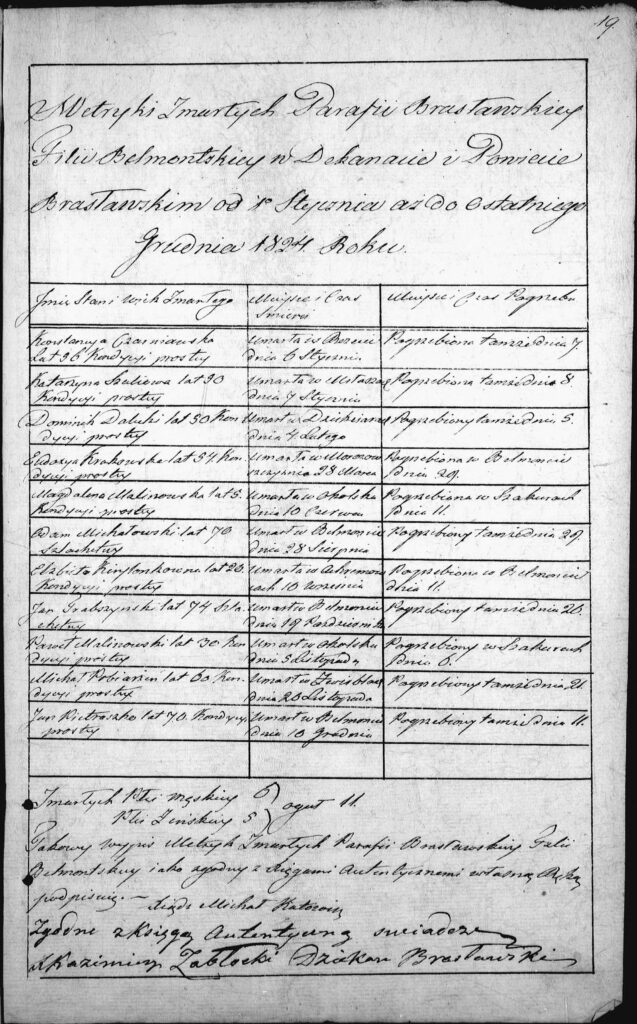 19.
Metryki Zmarłych Parafii Brasławskiey
Filii Belmontskiey w Dekanacie i Powiecie
Brasławskim od 1º Stycznia aż do Ostatniego
Grudnia 1824. Roku.
Jmie Stan i Wiek Zmarłego
Mieysce i Czas Smierci
Mieysce i Czas Pogrzebu
Konstancya Czerniawska
Lat 36 Kondycyi prostey
Umarła w
dnia 6 Stycznia
Pogrzebiona tamże dnia 7.
Katarzyna lat 30
Kondycyi prostey
Umarła w
dnia 7 Stycznia
Pogrzebiona tamże dnia 8.
Dominik lat 50 Kon
dycyi prostey
Umarł w
dnia 4 Lutego
Pogrzebiony tamże dnia 5.
Krakowska lat 54 Kon
dycyi prostey
Umarła w
28 Marca
Pogrzebiona w Belmoncie
dnia 29.
Magdalina Malinowska lat 5.
Kondycyi prostey
Umarła w Okolska
dnia 10 Czerwca
Pogrzebiona w Szakurach
dnia 11.
Adam Michałowski lat 70
Szlachetny
Umarł w Belmoncie
dnia 28 Sierpnia
Pogrzebiony tamże dnia 29.
Elżbieta lat 26.
Kondycyi prostey
Umarła w
10 Września
Pogrzebiona w Belmoncie
dnia 11.
Jan Grabszynski lat 74 Szla
chetny
Umarł w Belmoncie
dnia 19 Październ:
Pogrzebiony tamże dnia 20.
Paweł Malinowski lat 30 Kon
dycyi prostey
Umarł w Okolska
dnia 5 Listopada
Pogrzebiony w Szakurach
dnia 6.
Michał lat 60 Kon
dycyi prostey
Umarł w
dnia 20 Listopada
Pogrzebiony tamże dnia 21.
Jan Pietroszko lat 70. Kondycyi
prostey
Umarł w Belmoncie
dnia 10 Grudnia
Pogrzebiony tamże dnia 11.
Zmarłych Płci męskiey 6
Płci Żeńskiey 5
oguł 11.
Takowy wypis Metryk Zmarłych Parafii Brasławskiey Filii
Belmontskiey iako zgodny z Xięgami Autentycznemi własną Ręką
podpisuię. — Xiądz Michał
Zgodno z Xięgą Autentyczną swiadczę
X Kazimierz Zabłocki Dziekan Brasławski